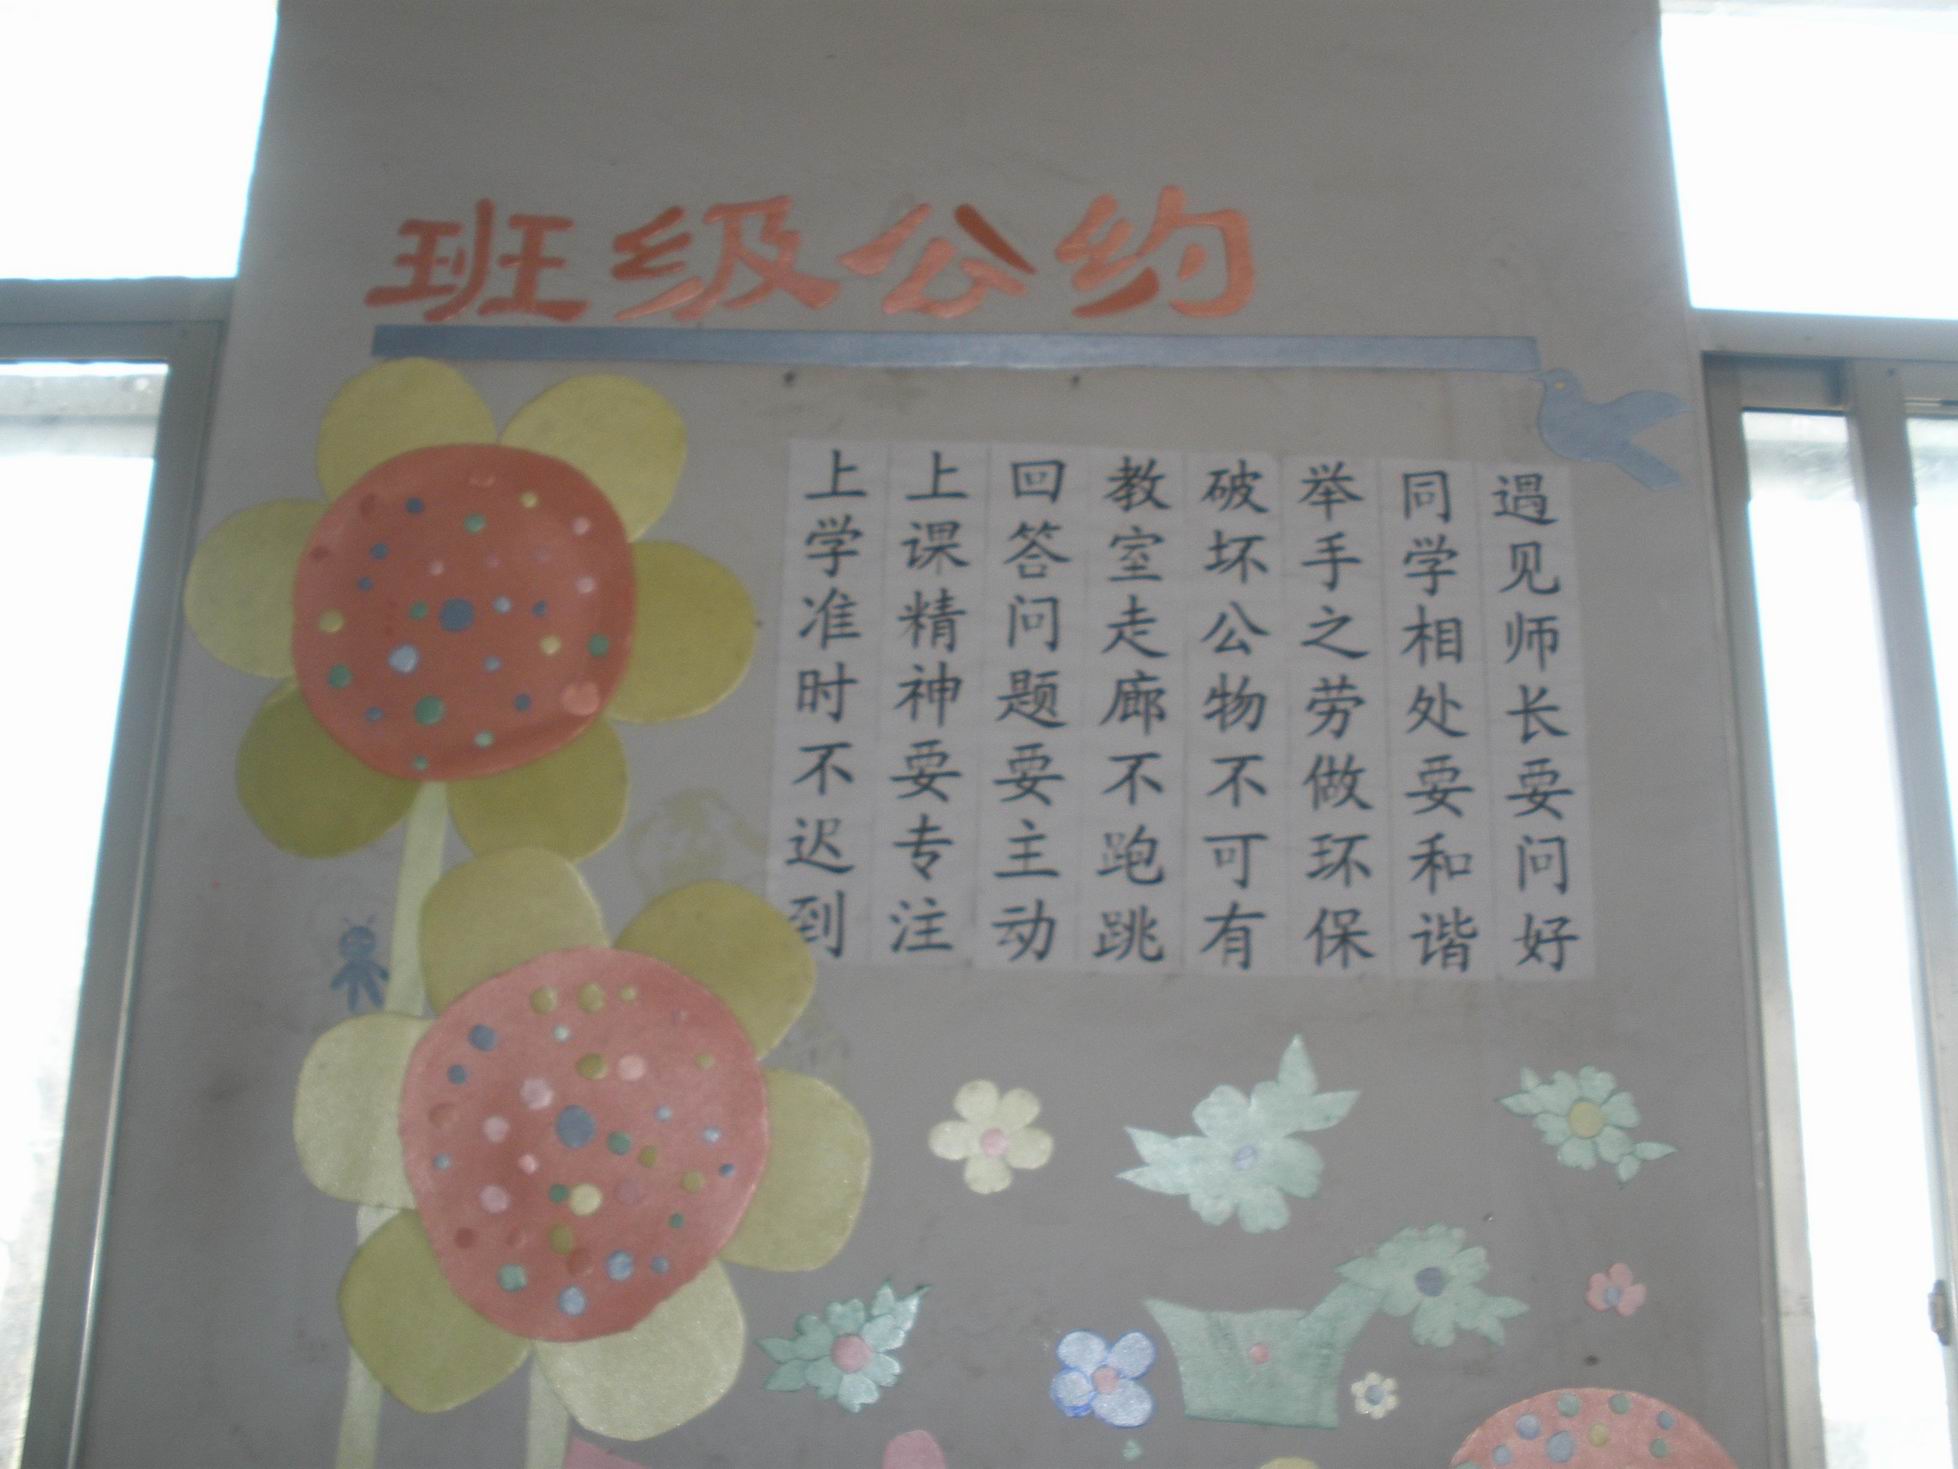 班级公约
上学准时不迟到
上课精神要专注
回答问题要主动
教室走廊不跑跳
破坏公物不可有
举手之劳做环保
同学相处要和谐
遇见师长要问好